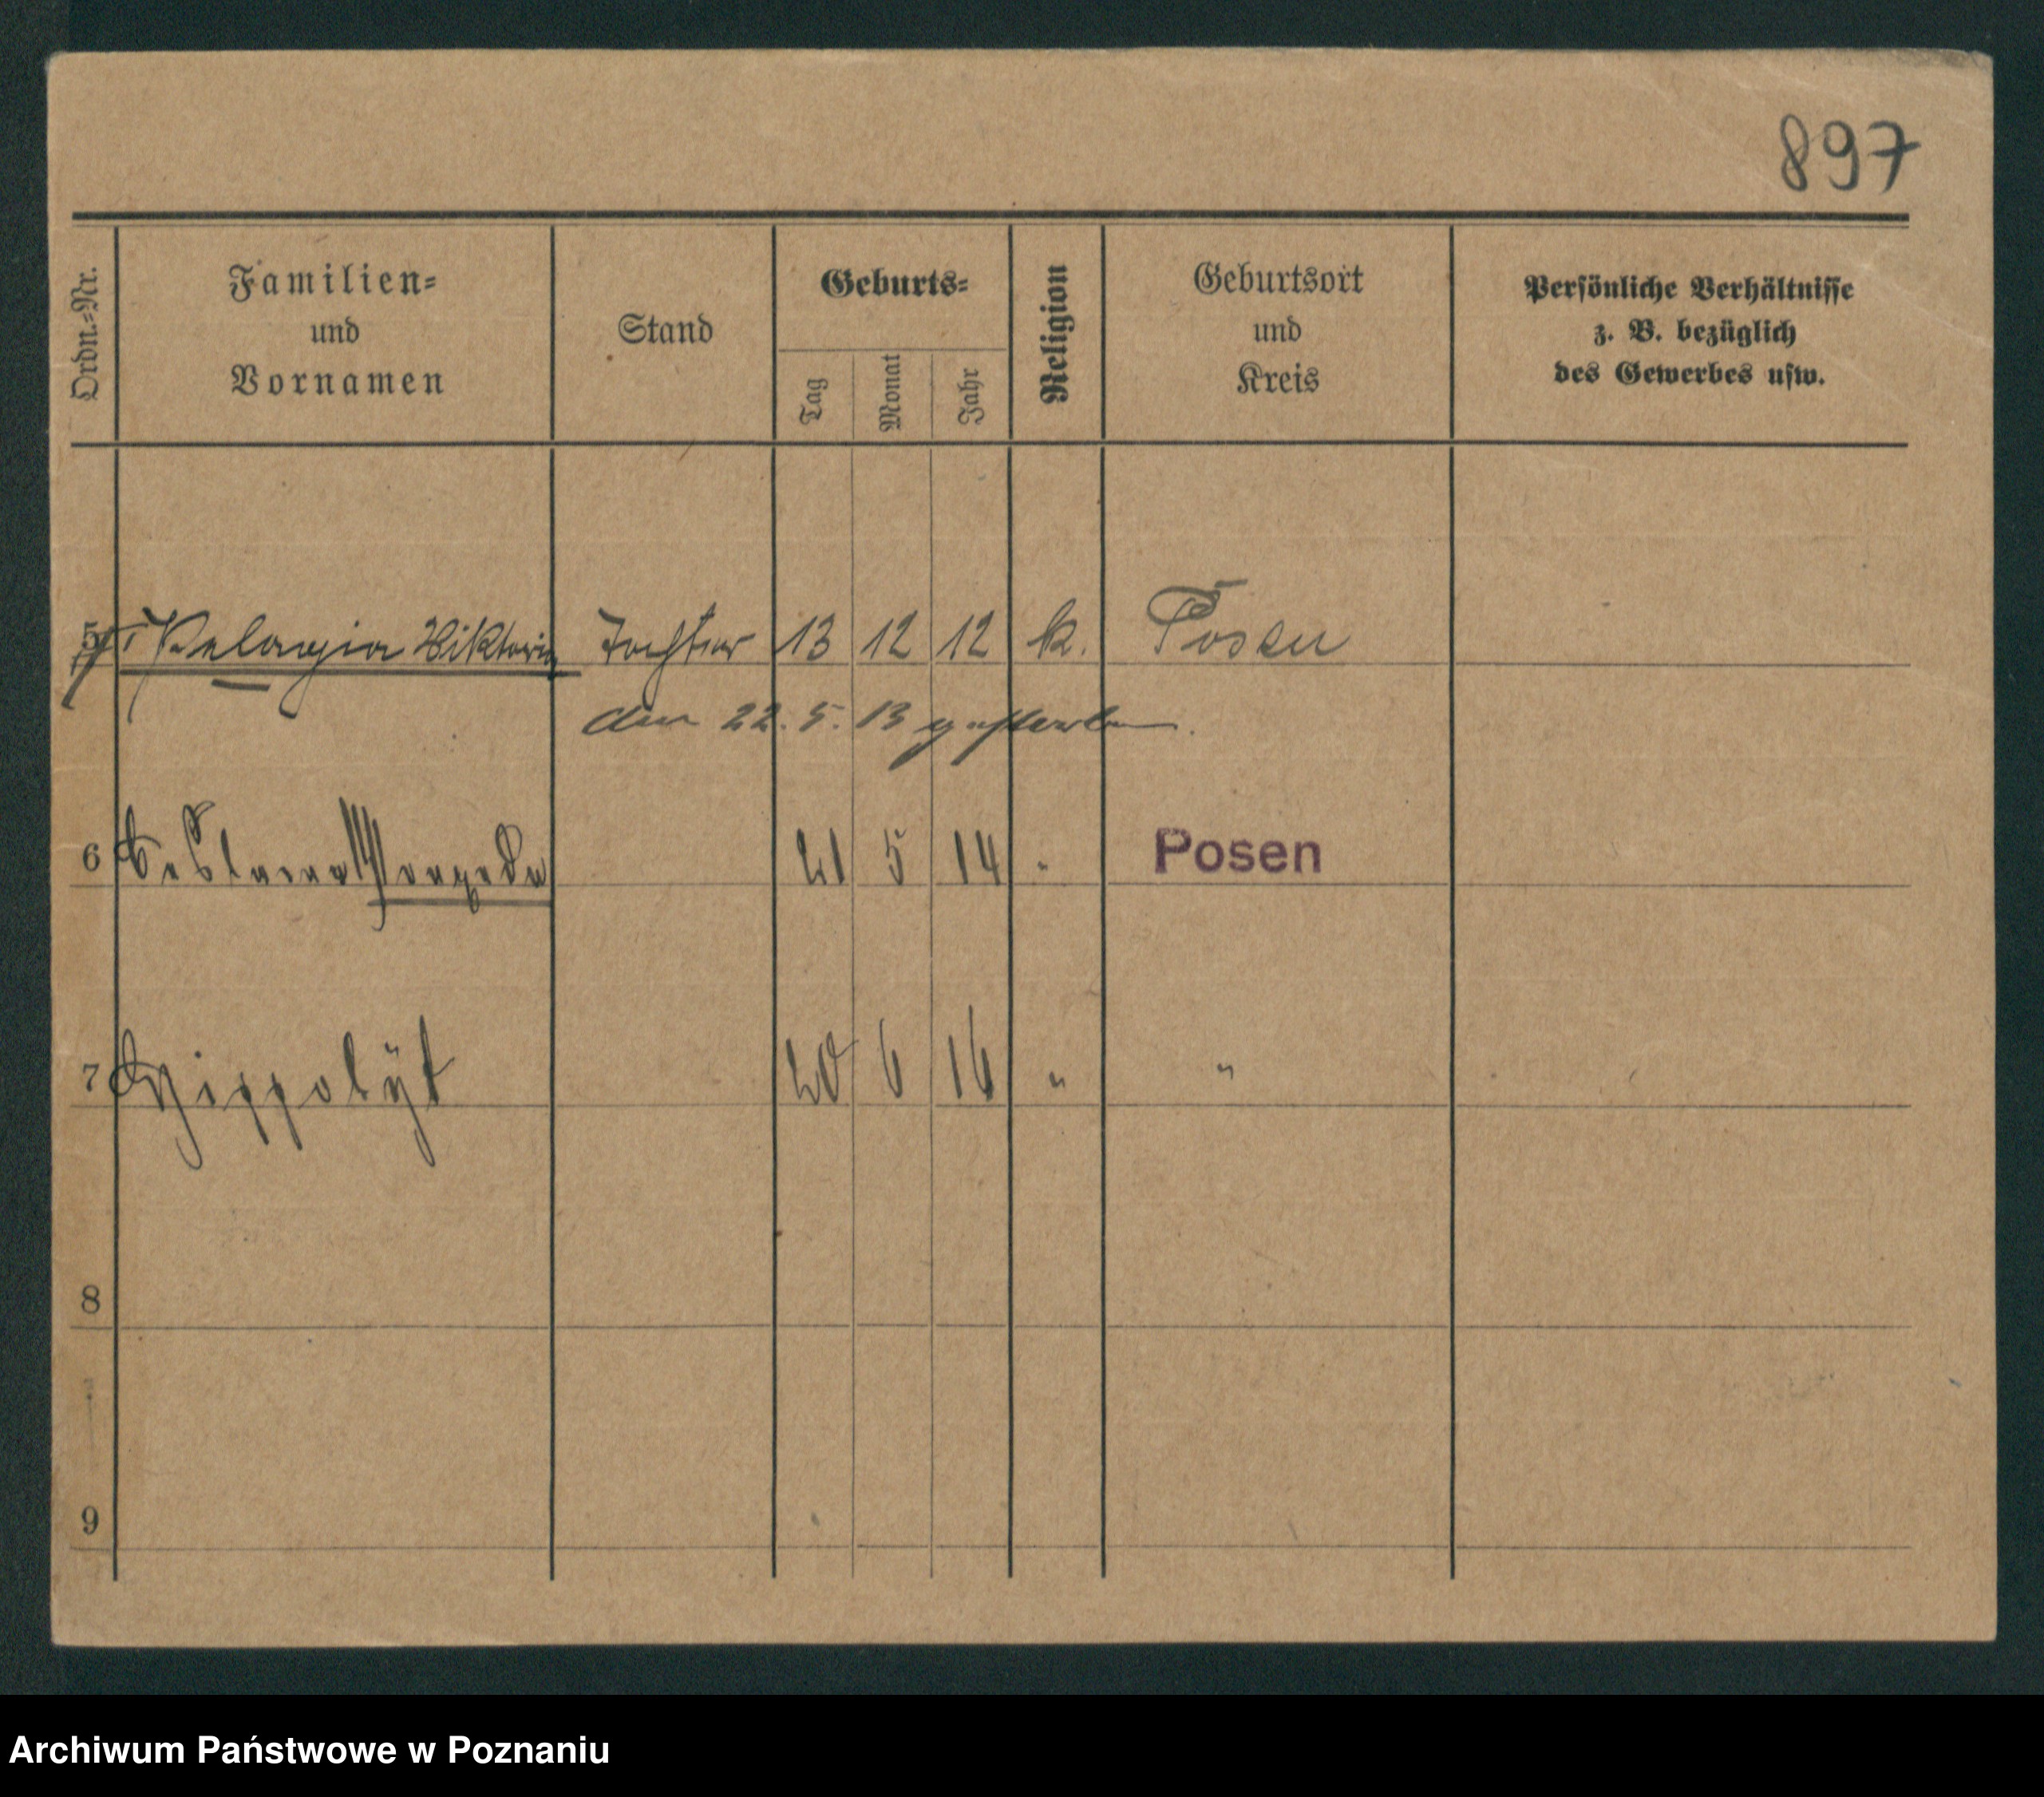 897
Ordn.-Nr.
Familien-
und
Vornamen
Stand
Geburts-
Tag
Monat
Jahr
Religion
Geburtsort
und
Kreis
Persönliche Verhältnisse
z. B. bezüglich
des Gewerbes usw.
5 Pelagia Viktoria Tochter 13 12 12 k. Posen
den 22. 5. 13 gestorben.
6 21 5 14 " Posen
7 Hippolyt 20 6 16 " "
8
9
Archiwum Państwowe w Poznaniu